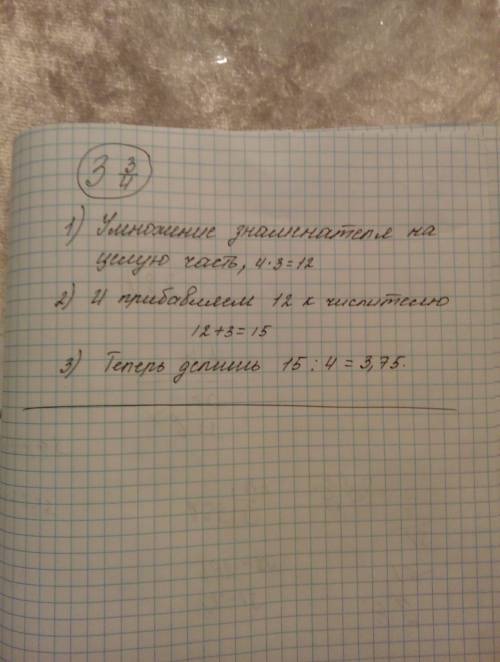 3 3/4
1) Умножение знаменателя на
целую часть, 4·3=12
2) И прибавляем 12 к числителю
12+3=15
3) Теперь делишь 15:4=3,75.